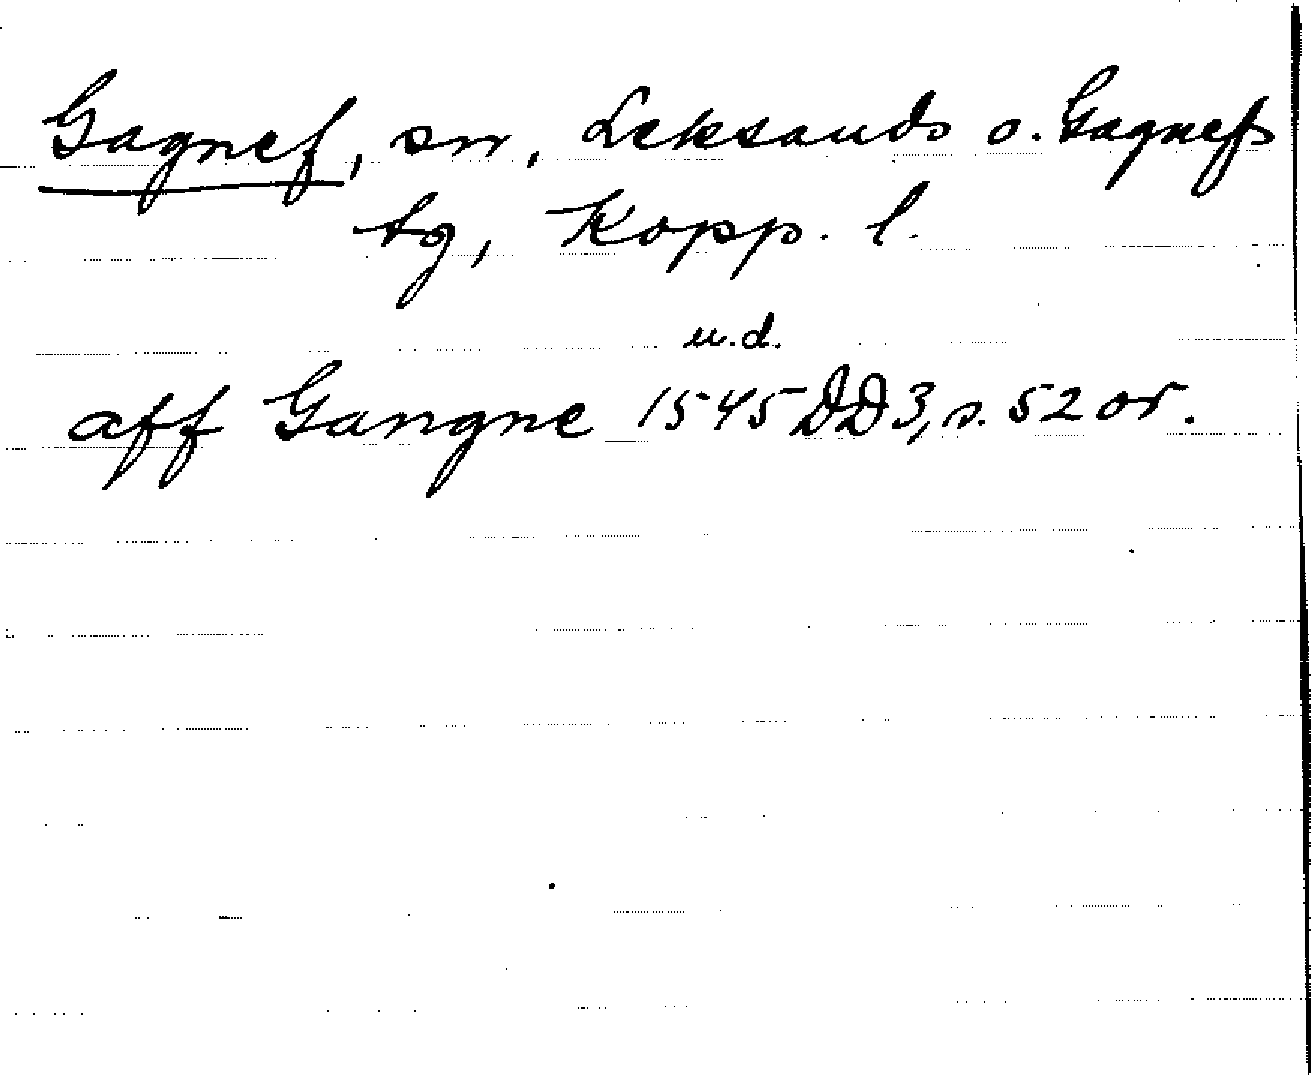 Gagnef, sn, Leksands o. Gagnefs
tg, Kopp. l.
u.d.
aff Gangne 1545 DD 3, s. 52 or.